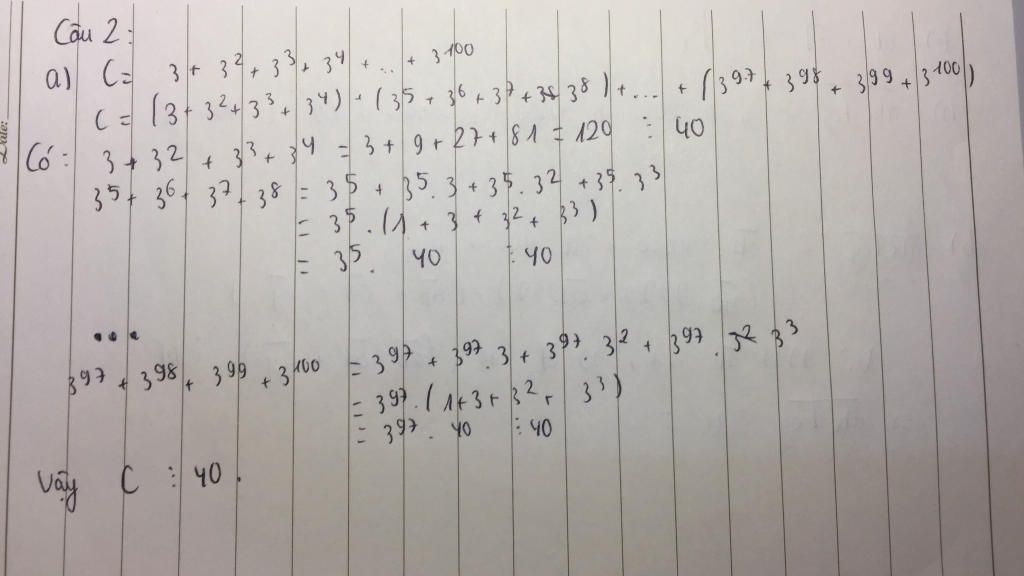 Date:
Câu 2:
a) C = 3 + 3² + 3³ + 3⁴ + ... + 3¹⁰⁰
C = (3 + 3² + 3³ + 3⁴) + (3⁵ + 3⁶ + 3⁷ + 3⁸) + ... + (3⁹⁷ + 3⁹⁸ + 3⁹⁹ + 3¹⁰⁰)
Có: 3 + 3² + 3³ + 3⁴ = 3 + 9 + 27 + 81 = 120 ⋮ 40
3⁵ + 3⁶ + 3⁷ + 3⁸ = 3⁵ + 3⁵. 3 + 3⁵. 3² + 3⁵. 3³
= 3⁵. (1 + 3 + 3² + 3³)
= 3⁵. 40 ⋮ 40
...
3⁹⁷ + 3⁹⁸ + 3⁹⁹ + 3¹⁰⁰ = 3⁹⁷ + 3⁹⁷. 3 + 3⁹⁷. 3² + 3⁹⁷. 3³
= 3⁹⁷. (1 + 3 + 3² + 3³)
= 3⁹⁷. 40 ⋮ 40
Vậy C ⋮ 40.